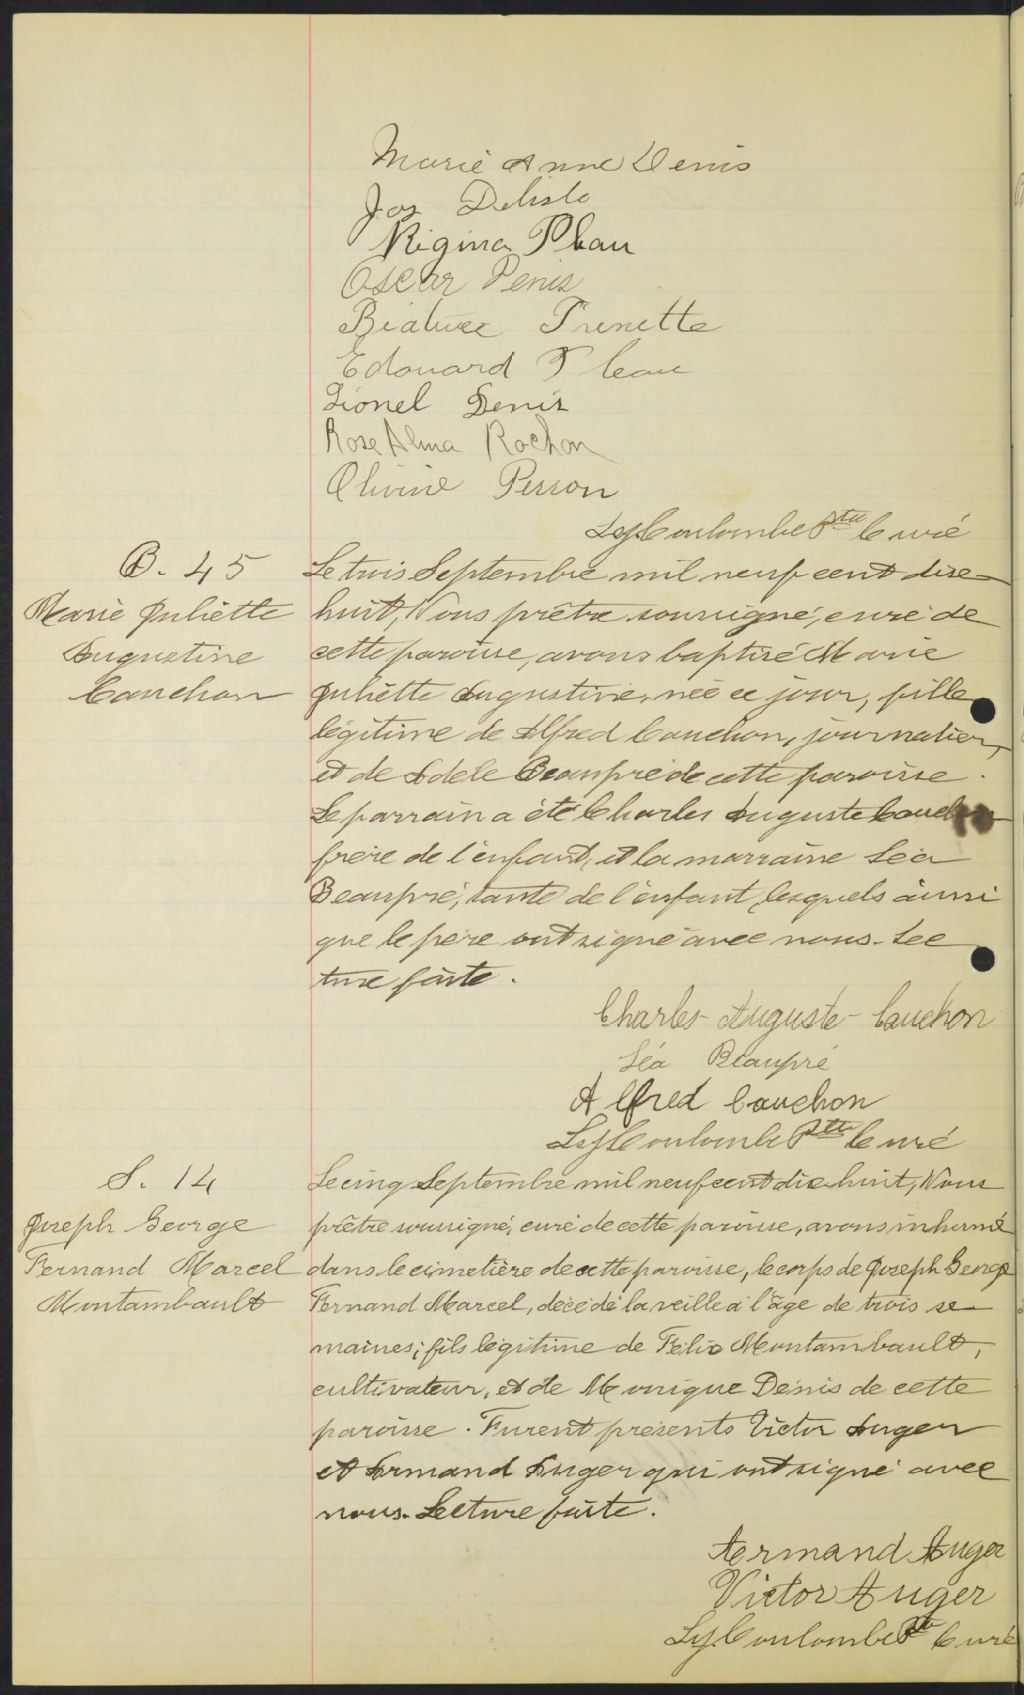 Marie Anne Denis
Jos Delisle
Régina Pleau
Oscar Denis
Béatrice Frenette
Edouard Pleau
Lionel Denis
Rose Alma Rochon
Olivine Perron
Coulombe Ptre Curé
B. 45
Marie Juliette
Augustine
Cauchon
Le trois Septembre mil neuf cent dix-
huit, Nous prêtre soussigné, curé de
cette paroisse, avons baptisé Marie
Juliette Augustine, née ce jour, fille
légitime de Alfred Cauchon, journalier,
et de Adele Beaupré de cette paroisse.
Le parrain a été Charles Auguste Cauchon
frère de l'enfant, et la marraine Léa
Beaupré, tante de l'enfant, lesquels ainsi
que le père ont signé avec nous. Lec
ture faite.
Charles-Auguste-Cauchon
Léa Beaupré
Alfred Cauchon
Coulombe Ptre Curé
S. 14
Joseph George
Fernand Marcel
Montambault
Le cinq Septembre mil neuf cent dix-huit, Nous
prêtre soussigné, curé de cette paroisse, avons inhumé
dans le cimetière de cette paroisse, le corps de Joseph George
Fernand Marcel, décédé la veille à l'âge de trois se-
maines; fils légitime de Félix Montambault,
cultivateur, et de Monique Denis de cette
paroisse. Furent présents Victor Auger
et Armand Auger qui ont signé avec
nous. Lecture faite.
Armand Auger
Victor Auger
Coulombe Ptre Curé